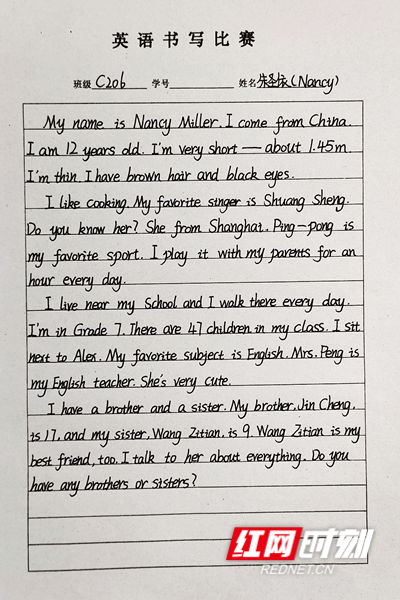 英语书写比赛
班级 C206 学号 姓名 (Nancy)
My name is Nancy Miller. I come from China.
I am 12 years old. I'm very short — about 1.45m.
I'm thin. I have brown hair and black eyes.
I like cooking. My favorite singer is Shuang Sheng.
Do you know her? She from Shanghai. Ping-pong is
my favorite sport. I play it with my parents for an
hour every day.
I live near my School and I walk there every day.
I'm in Grade 7. There are 47 children in my class. I sit
next to Alex. My favorite subject is English. Mrs. Peng is
my English teacher. She's very cute.
I have a brother and a sister. My brother, Jin Cheng,
is 17, and my sister, Wang Zitian, is 9. Wang Zitian is my
best friend, too. I talk to her about everything. Do you
have any brothers or sisters?
红网时刻
REDNET.CN